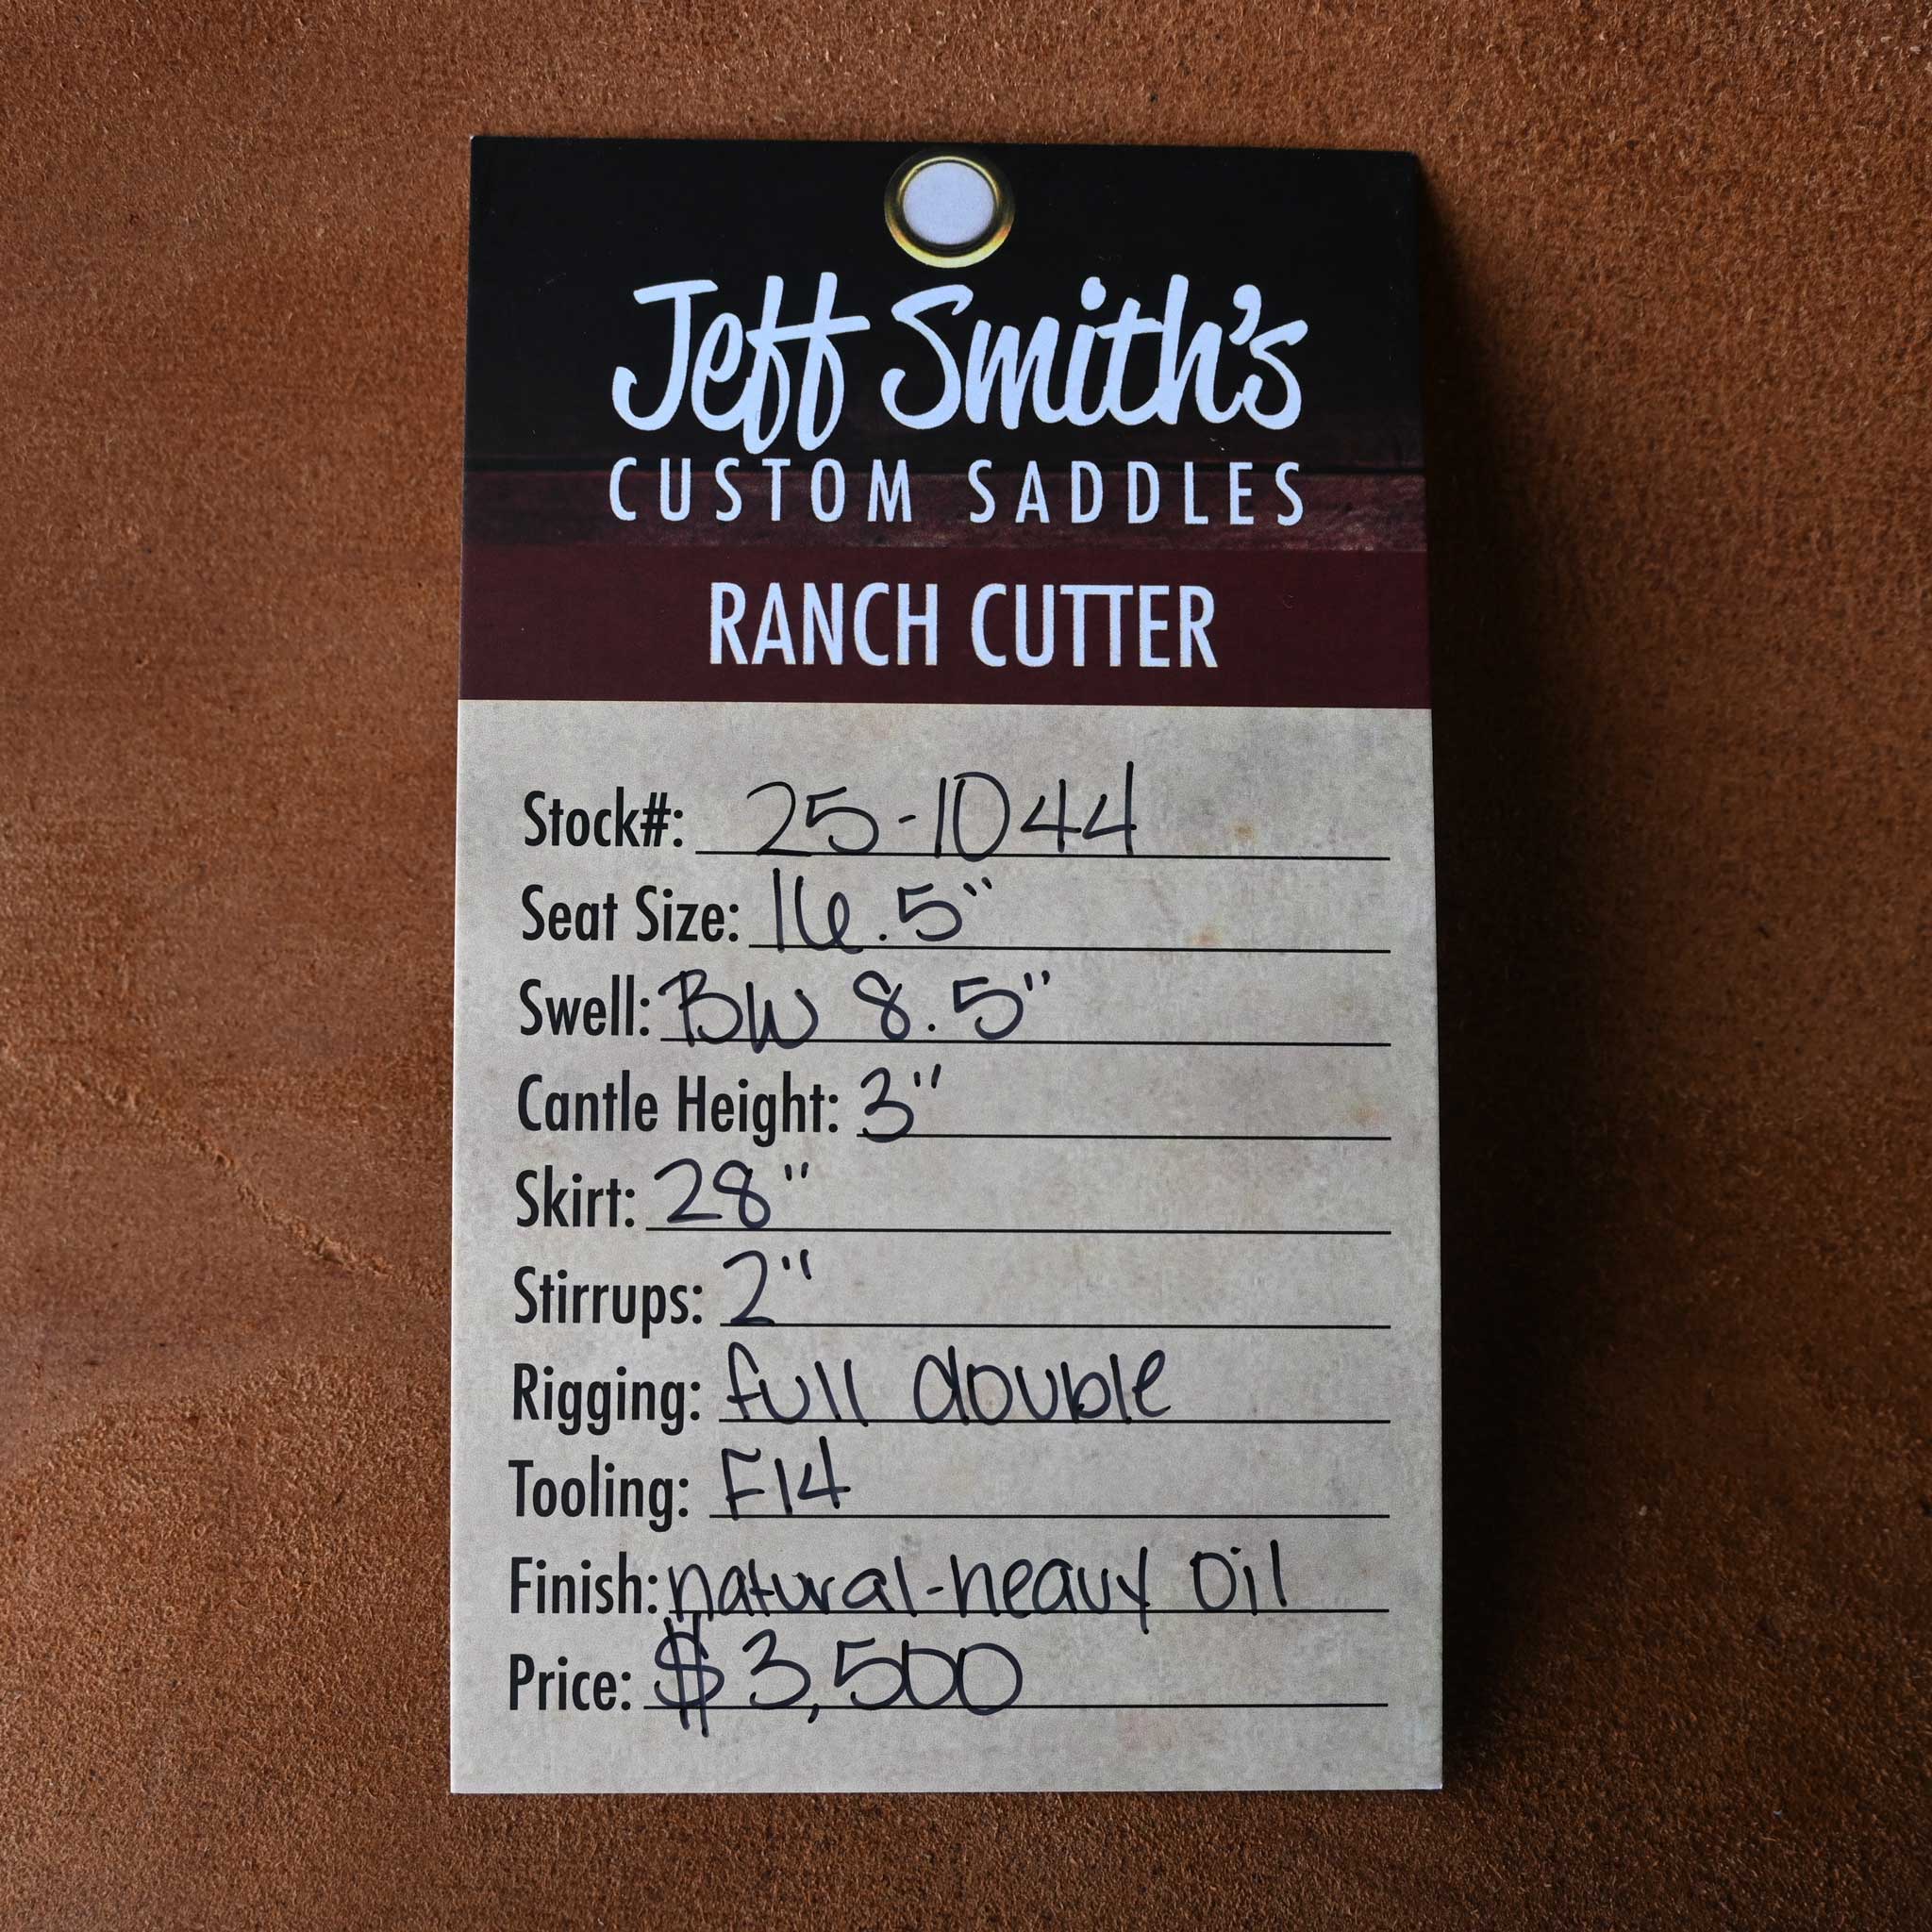 Jeff Smith's
CUSTOM SADDLES
RANCH CUTTER
Stock#: 25-1044
Seat Size: 16.5"
Swell: BW 8.5"
Cantle Height: 3"
Skirt: 28"
Stirrups: 2"
Rigging: full double
Tooling: F14
Finish: natural-heavy oil
Price: $3,500